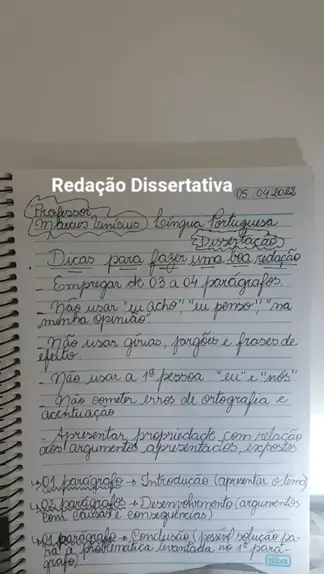 Redação Dissertativa
05.04.2022
Professor
Marcus Vinícius Língua Portuguesa
Dissertação
Dicas para fazer uma boa redação
- Empregar de 03 a 04 parágrafos
- Não usar "eu acho", "eu penso", "na
minha opinião".
- Não usar gírias, jargões e frases de
efeito.
- Não usar a 1ª pessoa "eu" e "nós"
- Não cometer erros de ortografia e
acentuação
- Apresentar propriedade com relação
aos argumentos apresentados, expostos
→ 01 parágrafo → Introdução (apresentar o tema)
→ 02 parágrafos → Desenvolvimento (argumentos
com causas e consequências)
→ 01 parágrafo → Conclusão (possível solução pa-
ra a problemática levantada no 1º pará-
grafo)
tilibra